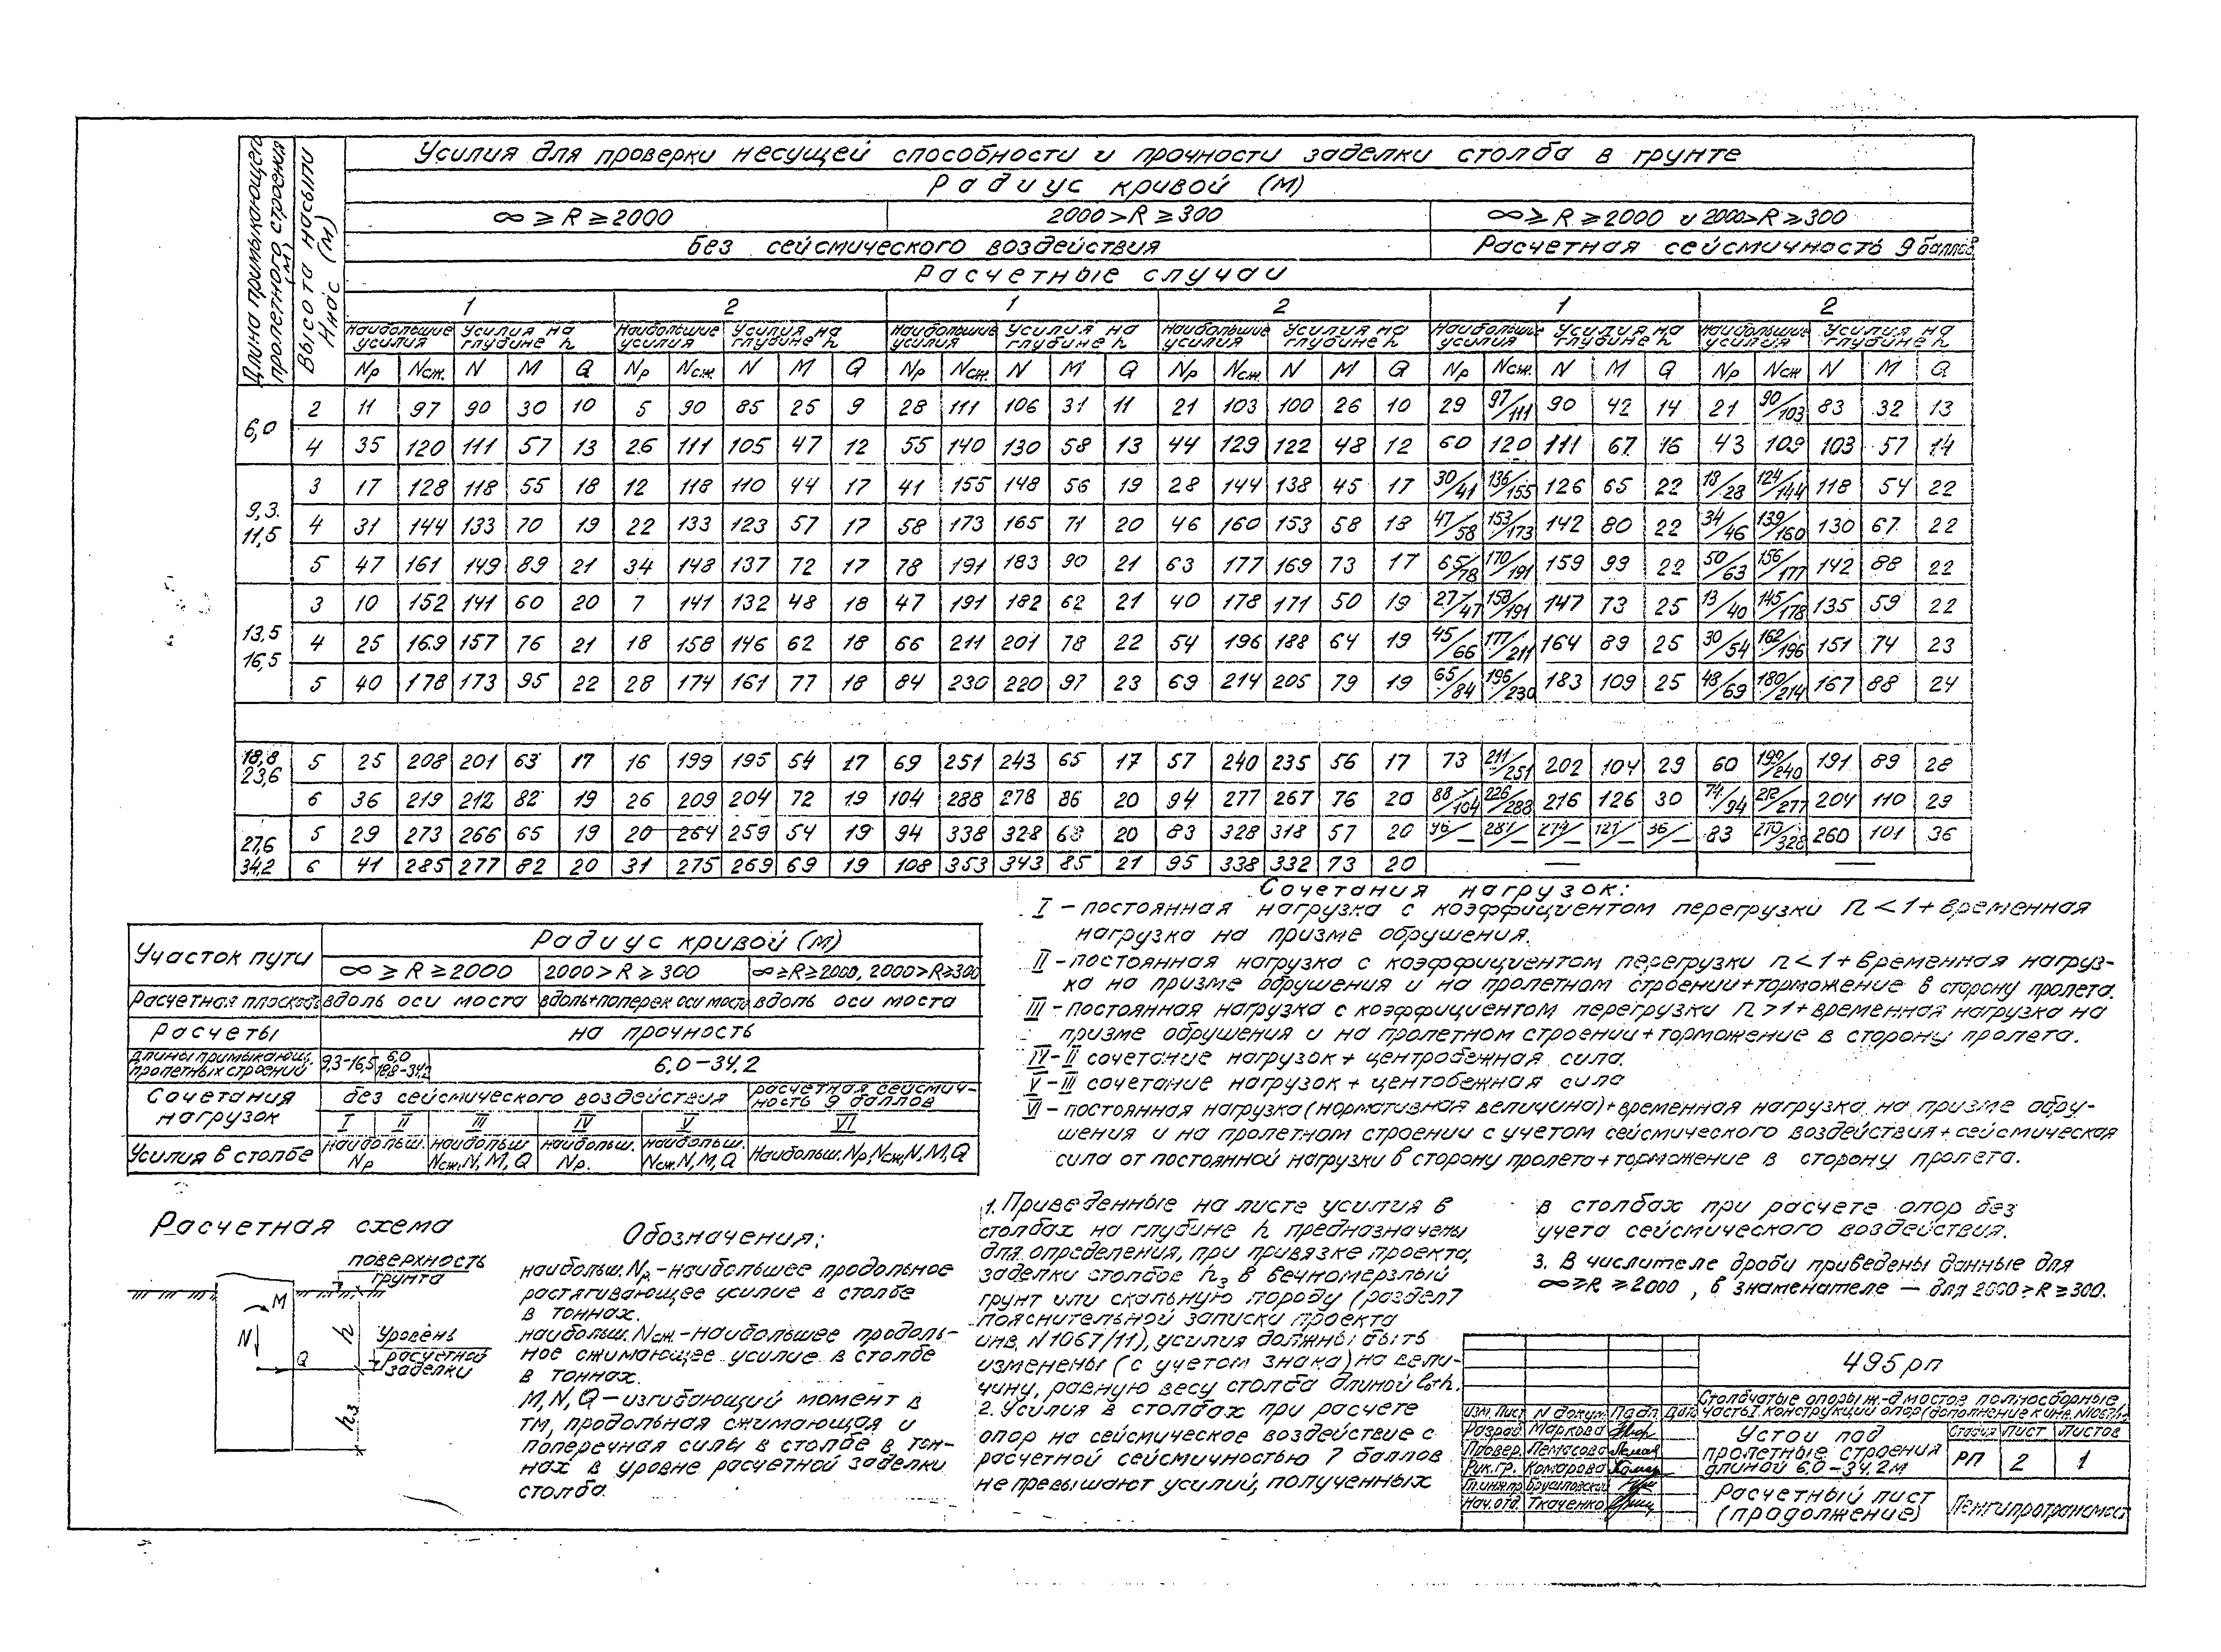 Усилия для проверки несущей способности и прочности заделки столба в грунте
Длина примыкающего пролетного строения (м)
Высота насыпи Ннас (м)
Радиус кривой (м)
∞ ≥ R ≥ 2000 2000 > R ≥ 300 ∞ ≥ R ≥ 2000 и 2000 > R ≥ 300
без сейсмического воздействия Расчетная сейсмичность 9 баллов
Расчетные случаи
1 2 1 2 1 2
Наибольшие усилия Усилия на глубине h Наибольшие усилия Усилия на глубине h Наибольшие усилия Усилия на глубине h Наибольшие усилия Усилия на глубине h Наибольшие усилия Усилия на глубине h Наибольшие усилия Усилия на глубине h
Nр Nсж. N M Q Nр Nсж N M Q Nр Nсж. N M Q Nр Nсж N M Q Nр Nсж. N M Q Nр Nсж N M Q
6,0
2 11 97 90 30 10 5 90 85 25 9 28 111 106 31 11 21 103 100 26 10 29 97/111 90 42 14 21 90/103 83 32 13
4 35 120 111 57 13 26 111 105 47 12 55 140 130 58 13 44 129 122 48 12 60 120 111 67 16 43 109 103 57 14
9,3. 11,5
3 17 128 118 55 18 12 118 110 44 17 41 155 148 56 19 28 144 138 45 17 30/41 136/155 126 65 22 18/28 124/144 118 54 22
4 31 144 133 70 19 22 133 123 57 17 58 173 165 71 20 46 160 153 58 18 47/58 153/173 142 80 22 34/46 139/160 130 67 22
5 47 161 149 89 21 34 148 137 72 17 78 191 183 90 21 63 177 169 73 17 65/78 170/191 159 99 22 50/63 156/177 142 88 22
13,5 16,5
3 10 152 141 60 20 7 141 132 48 18 47 191 182 62 21 40 178 171 50 19 27/47 158/191 147 73 25 13/40 145/178 135 59 22
4 25 169 157 76 21 18 158 146 62 18 66 211 201 78 22 54 196 188 64 19 45/66 177/211 164 89 25 30/54 162/196 151 74 23
5 40 178 173 95 22 28 174 161 77 18 84 230 220 97 23 69 214 205 79 19 65/84 196/230 183 109 25 48/69 180/214 167 88 24
18,8 23,6
5 25 208 201 63 17 16 199 195 54 17 69 251 243 65 17 57 240 235 56 17 73 211/251 202 104 29 60 199/240 191 89 28
6 36 219 212 82 19 26 209 204 72 19 104 288 278 86 20 94 277 267 76 20 88/104 226/288 216 126 30 74/94 212/277 204 110 29
27,6 34,2
5 29 273 266 65 19 20 264 259 54 19 94 338 328 68 20 83 328 318 57 20 96/— 281/— 274/— 121/— 36/— 83 270/328 260 101 36
6 41 285 277 82 20 31 275 269 69 19 108 353 343 85 21 95 338 332 73 20 — —
Участок пути Радиус кривой (м)
∞ ≥ R ≥ 2000 2000 > R ≥ 300 ∞≥R≥2000, 2000>R≥300
Расчетная плоскость вдоль оси моста вдоль+поперек оси моста вдоль оси моста
Расчеты на прочность
Длины примыкающ. пролетных строений 9,3–16,5 6,0 18,8–34,2 6,0–34,2
Сочетания нагрузок без сейсмического воздействия расчетная сейсмичность 9 баллов
I II III IV V VI
Усилия в столбе Наибольш. Nр Наибольш Nсж, N, M, Q Наибольш. Nр. Наибольш. Nсж. N, M, Q Наибольш. Nр, Nсж, N, M, Q
Сочетания нагрузок:
I – постоянная нагрузка с коэффициентом перегрузки n < 1 + временная
нагрузка на призме обрушения.
II – постоянная нагрузка с коэффициентом перегрузки n < 1 + временная нагруз-
ка на призме обрушения и на пролетном строении+торможение в сторону пролета.
III – постоянная нагрузка с коэффициентом перегрузки n > 1 + временная нагрузка на
призме обрушения и на пролетном строении+торможение в сторону пролета.
IV – II сочетание нагрузок + центробежная сила.
V – III сочетание нагрузок + центобежная сила
VI – постоянная нагрузка (нормативная величина)+временная нагрузка на призме обру-
шения и на пролетном строении с учетом сейсмического воздействия+сейсмическая
сила от постоянной нагрузки в сторону пролета+торможение в сторону пролета.
Расчетная схема
поверхность
грунта
M
N
Q
h
Уровень
расчетной
заделки
h3
Обозначения:
наибольш. Nр – наибольшее продольное
растягивающее усилие в столбе
в тоннах.
наибольш. Nсж. – наибольшее продоль-
ное сжимающее усилие в столбе
в тоннах.
M, N, Q – изгибающий момент в
тм, продольная сжимающая и
поперечная силы в столбе в тон-
нах в уровне расчетной заделки
столба.
1. Приведенные на листе усилия в
столбах на глубине h предназначены
для определения, при привязке проекта,
заделки столбов h3 в вечномерзлый
грунт или скальную породу (раздел 7
пояснительной записки проекта
инв. N 1067/11), усилия должны быть
изменены (с учетом знака) на вели-
чину, равную весу столба длиной
2. Усилия в столбах при расчете
опор на сейсмическое воздействие с
расчетной сейсмичностью 7 баллов
не превышают усилий, полученных
в столбах при расчете опор без
учета сейсмического воздействия.
3. В числителе дроби приведены данные для
∞ ≥ R ≥ 2000, в знаменателе — для 2000 > R ≥ 300.
495 рп
Столбчатые опоры ж.-д мостов полносборные
часть I. Конструкции опор (дополнение к инв. N1067/1
Изм. Лист N докум. Подп. Дата
Разраб Маркова
Провер. Лемасова
Рук.гр. Комарова
Гл.инж.пр. Брусиловский
Нач. отд. Ткаченко
Устои под
пролетные строения
длиной 6,0–34,2м
Стадия Лист Листов
РП 2 1
Расчетный лист
(продолжение)
Ленгипротрансмост